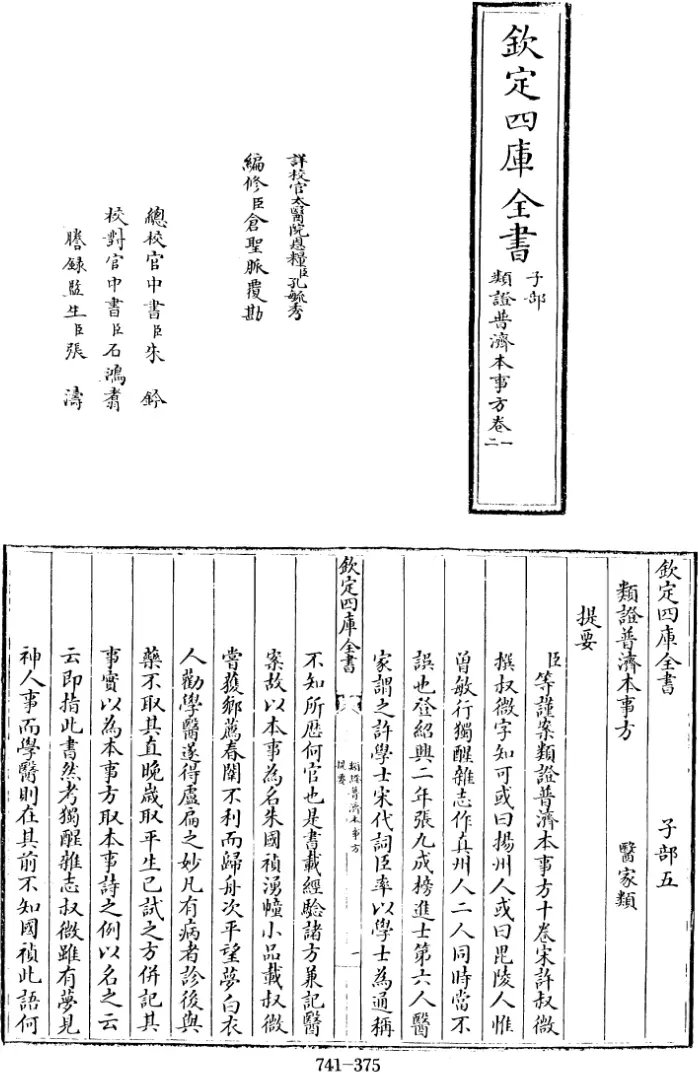 欽定四庫全書
子部
類證普濟本事方卷一
二
詳校官太醫院恩糧臣孔毓秀
編修臣倉聖脈覆勘
總校官中書臣朱鈐
校對官中書臣石鴻翥
謄錄監生臣張濤
欽定四庫全書 子部五
類證普濟本事方 醫家類
提要
臣等謹案類證普濟本事方十卷宋許叔微
撰叔微字知可或曰揚州人或曰毘陵人惟
曾敏行獨醒雜志作真州人二人同時當不
誤也登紹興二年張九成榜進士第六人醫
家謂之許學士宋代詞臣率以學士為通稱
欽定四庫全書
類證普濟本事方
提要
一
不知所歴何官也是書載經驗諸方兼記醫
案故以本事為名朱國禎湧幢小品載叔微
嘗獲鄉薦春闈不利而歸舟次平望夢白衣
人勸學醫遂得盧扁之妙凡有病者診後與
藥不取其直晚歲取平生已試之方併記其
事實以為本事方取本事詩之例以名之云
云即指此書然考獨醒雜志叔微雖有夢見
神人事而學醫則在其前不知國禎此語何
741-375